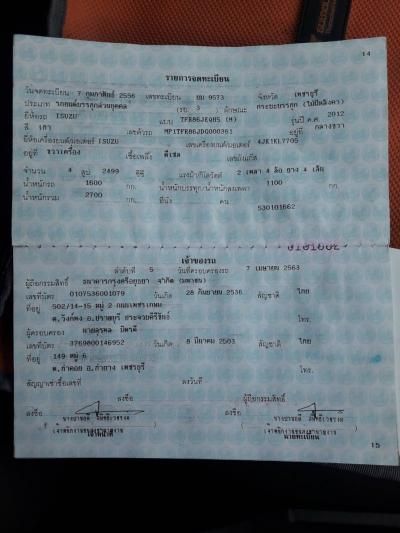 14
รายการจดทะเบียน
วันจดทะเบียน 7 กุมภาพันธ์ 2556 เลขทะเบียน ยษ 9573 จังหวัด เพชรบุรี
ประเภท รถยนต์บรรทุกส่วนบุคคล (รย 3 ) ลักษณะ กระบะบรรทุก (ไม่มีหลังคา)
ยี่ห้อรถ ISUZU แบบ TFR86JEQR5 (M) รุ่นปี ค.ศ. 2012
สี เทา เลขตัวรถ MP1TFR86JDG000361 อยู่ที่ กลางขวา
ยี่ห้อเครื่องยนต์/มอเตอร์ ISUZU เลขเครื่องยนต์/มอเตอร์ 4JK1KL7705
อยู่ที่ ขวาเครื่อง เชื้อเพลิง ดีเซล เลขถังแก๊ส
จำนวน 4 สูบ 2499 ซีซี แรงม้า/กิโลวัตต์ 2 เพลา 4 ล้อ ยาง 4 เส้น
น้ำหนักรถ 1600 กก. น้ำหนักบรรทุก/น้ำหนักลงเพลา 1100 กก.
น้ำหนักรวม 2700 กก. ที่นั่ง คน
530101662
0101662
เจ้าของรถ
ลำดับที่ 5 วันที่ครอบครองรถ 7 เมษายน 2563
ผู้ถือกรรมสิทธิ์ ธนาคารกรุงศรีอยุธยา จำกัด (มหาชน)
เลขที่บัตร 0107536001079 วันเกิด 28 กันยายน 2536 สัญชาติ ไทย
ที่อยู่ 502/14-15 หมู่ 2 ถนนเพชรเกษม
ต.วังก์พง อ.ปราณบุรี ประจวบคีรีขันธ์ โทร.
ผู้ครอบครอง
เลขที่บัตร 3769800146952 วันเกิด 8 มีนาคม 2503 สัญชาติ ไทย
ที่อยู่ 149 หมู่ 6
อ.ท่ายาง เพชรบุรี โทร.
สัญญาเช่าซื้อเลขที่ ลงวันที่
ลงชื่อ ผู้ถือกรรมสิทธิ์
ลงชื่อ ลงชื่อ
เจ้าหน้าที่ นายทะเบียน
15